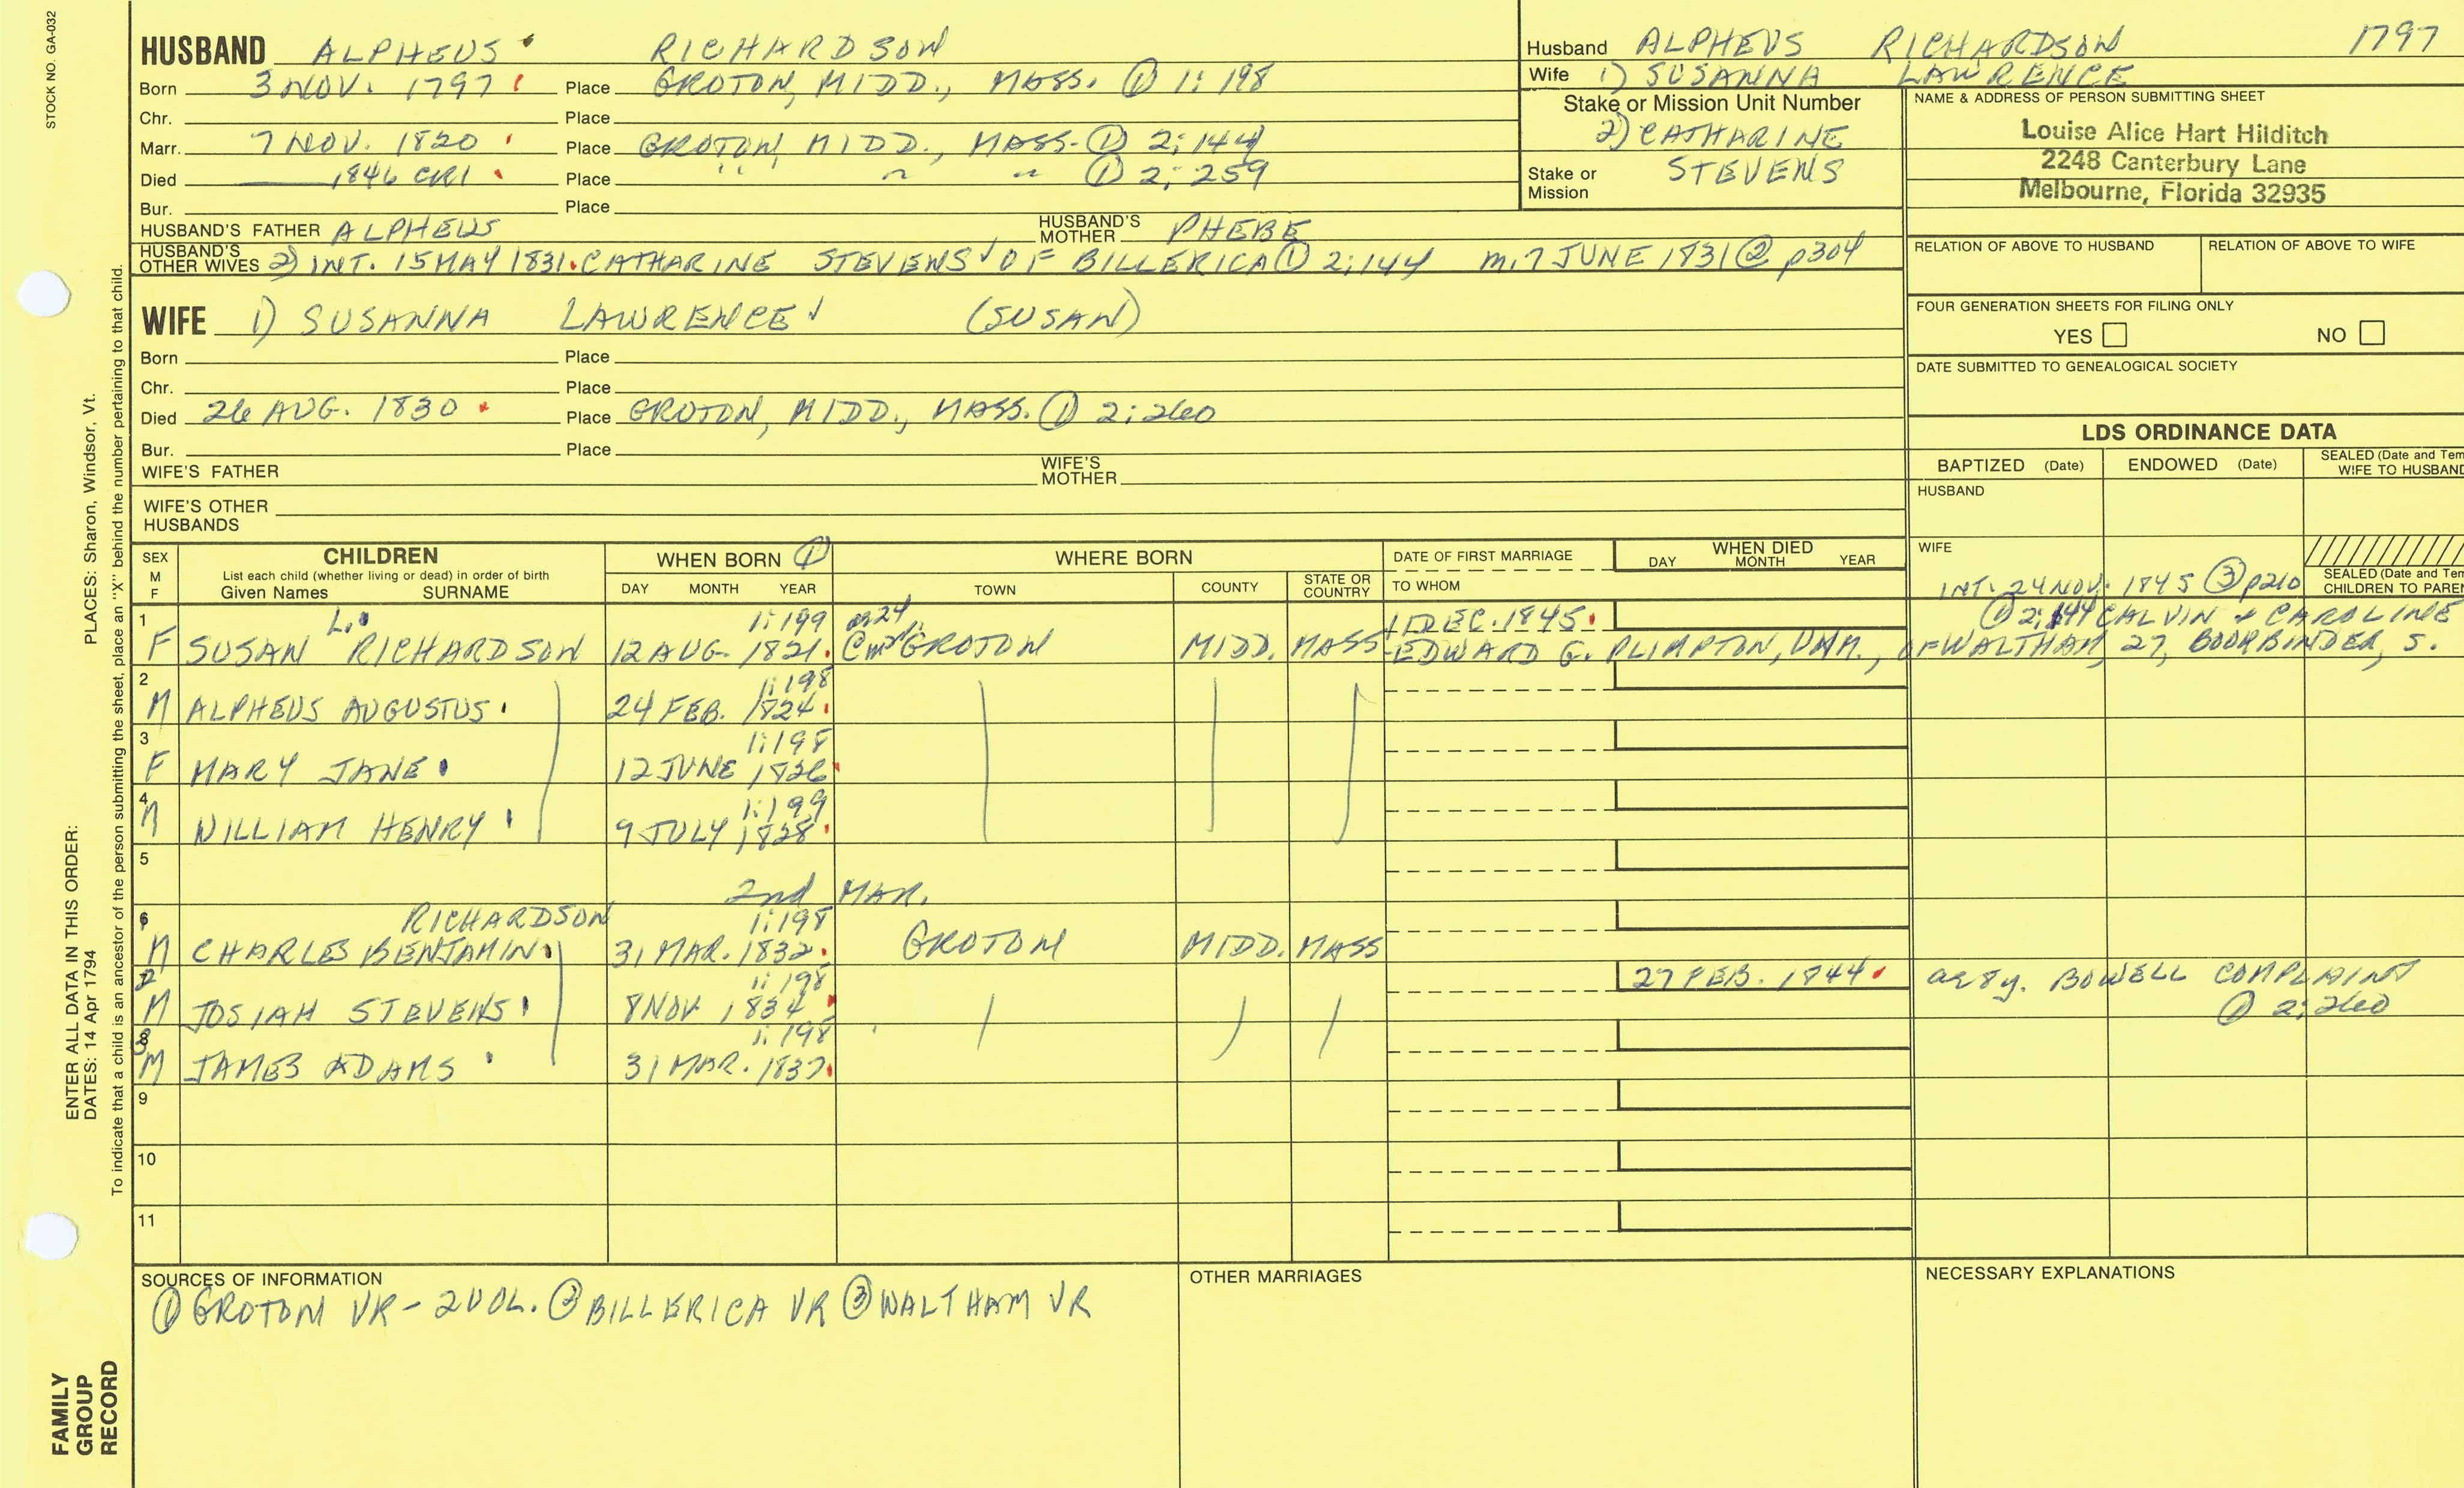 STOCK NO. GA-032
HUSBAND ALPHEUS RICHARDSON
Born 3 NOV. 1797 Place GROTON, MIDD., MASS. ① 1:198
Chr. Place
Marr. 7 NOV. 1820 Place GROTON, MIDD., MASS. ① 2:144
Died 1846 CR1 Place " " " ① 2:259
Bur. Place
HUSBAND'S FATHER ALPHEUS HUSBAND'S MOTHER PHEBE
HUSBAND'S OTHER WIVES 2) INT. 15 MAY 1831. CATHARINE STEVENS OF BILLERICA ① 2:144 m. 7 JUNE 1831 ② p304
WIFE 1) SUSANNA LAWRENCE (SUSAN)
Born Place
Chr. Place
Died 26 AUG. 1830 Place GROTON, MIDD., MASS. ① 2:260
Bur. Place
WIFE'S FATHER WIFE'S MOTHER
WIFE'S OTHER HUSBANDS
Husband ALPHEUS RICHARDSON 1797
Wife 1) SUSANNA LAWRENCE
Stake or Mission Unit Number
2) CATHARINE
Stake or Mission STEVENS
NAME & ADDRESS OF PERSON SUBMITTING SHEET
Louise Alice Hart Hilditch
2248 Canterbury Lane
Melbourne, Florida 32935
RELATION OF ABOVE TO HUSBAND RELATION OF ABOVE TO WIFE
FOUR GENERATION SHEETS FOR FILING ONLY
YES NO
DATE SUBMITTED TO GENEALOGICAL SOCIETY
LDS ORDINANCE DATA
BAPTIZED (Date) ENDOWED (Date) SEALED (Date and Tem
WIFE TO HUSBAND
HUSBAND
WIFE
SEALED (Date and Tem
CHILDREN TO PAREN
SEX M F CHILDREN WHEN BORN ① WHERE BORN DATE OF FIRST MARRIAGE WHEN DIED
List each child (whether living or dead) in order of birth
Given Names SURNAME DAY MONTH YEAR TOWN COUNTY STATE OR COUNTRY TO WHOM DAY MONTH YEAR
INT. 24 NOV. 1845 ③ p210
1 L. 1:199 ae 24 DEC. 1845. ① 2:144 CALVIN & CAROLINE
F SUSAN RICHARDSON 12 AUG. 1821. GROTON MIDD. MASS EDWARD G. PLIMPTON, UNM., OF WALTHAM, 27, BOOKBINDER, S.
2 1:198
M ALPHEUS AUGUSTUS 24 FEB. 1824
3 1:198
F MARY JANE 12 JUNE 1826
4 1:199
M WILLIAM HENRY 9 JULY 1828
5
2nd MAR.
6 RICHARDSON 1:198
M CHARLES BENJAMIN 31 MAR. 1832. GROTON MIDD. MASS
7 1:198 27 FEB. 1844 ae 8y. BOWELL COMPLAINT
M JOSIAH STEVENS 8 NOV 1834 ① 2:260
8 1:198
M JAMES ADAMS 31 MAR. 1837
9
10
11
SOURCES OF INFORMATION
① GROTON VR - 2 VOL. ② BILLERICA VR ③ WALTHAM VR
OTHER MARRIAGES
NECESSARY EXPLANATIONS
FAMILY GROUP RECORD
ENTER ALL DATA IN THIS ORDER:
DATES: 14 Apr 1794
PLACES: Sharon, Windsor, Vt.
To indicate that a child is an ancestor of the person submitting the sheet, place an "X" behind the number pertaining to that child.